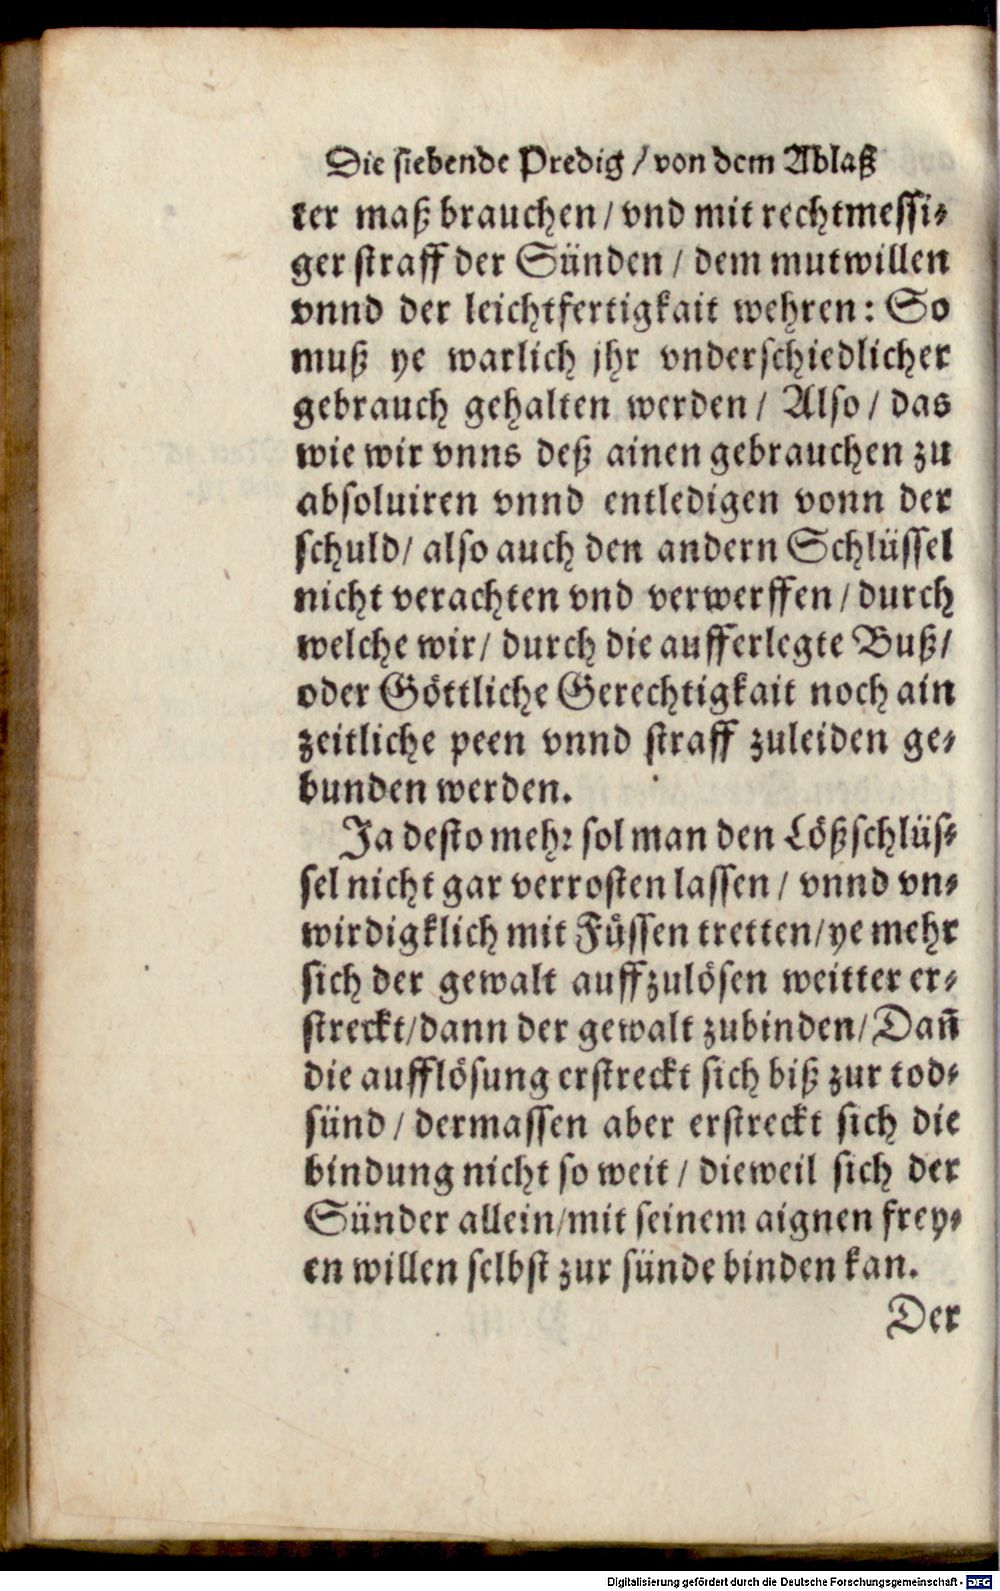 Die siebende Predig / von dem Ablaß
ter maß brauchen / vnd mit rechtmessi-
ger straff der Sünden / dem mutwillen
vnnd der leichtfertigkait wehren: So
muß ye warlich jhr vnderschiedlicher
gebrauch gehalten werden / Also / das
wie wir vnns deß ainen gebrauchen zu
absoluiren vnnd entledigen vonn der
schuld / also auch den andern Schlüssel
nicht verachten vnd verwerffen / durch
welche wir / durch die aufferlegte Buß /
oder Göttliche Gerechtigkait noch ain
zeitliche peen vnnd straff zuleiden ge-
bunden werden.
Ja desto mehr sol man den Lößschlüs-
sel nicht gar verrosten lassen / vnnd vn-
wirdigklich mit Füssen tretten / ye mehr
sich der gewalt auffzulösen weitter er-
streckt / dann der gewalt zubinden / Dañ
die aufflösung erstreckt sich biß zur tod-
sünd / dermassen aber erstreckt sich die
bindung nicht so weit / dieweil sich der
Sünder allein / mit seinem aignen frey-
en willen selbst zur sünde binden kan.
Der
Digitalisierung gefördert durch die Deutsche Forschungsgemeinschaft - DFG